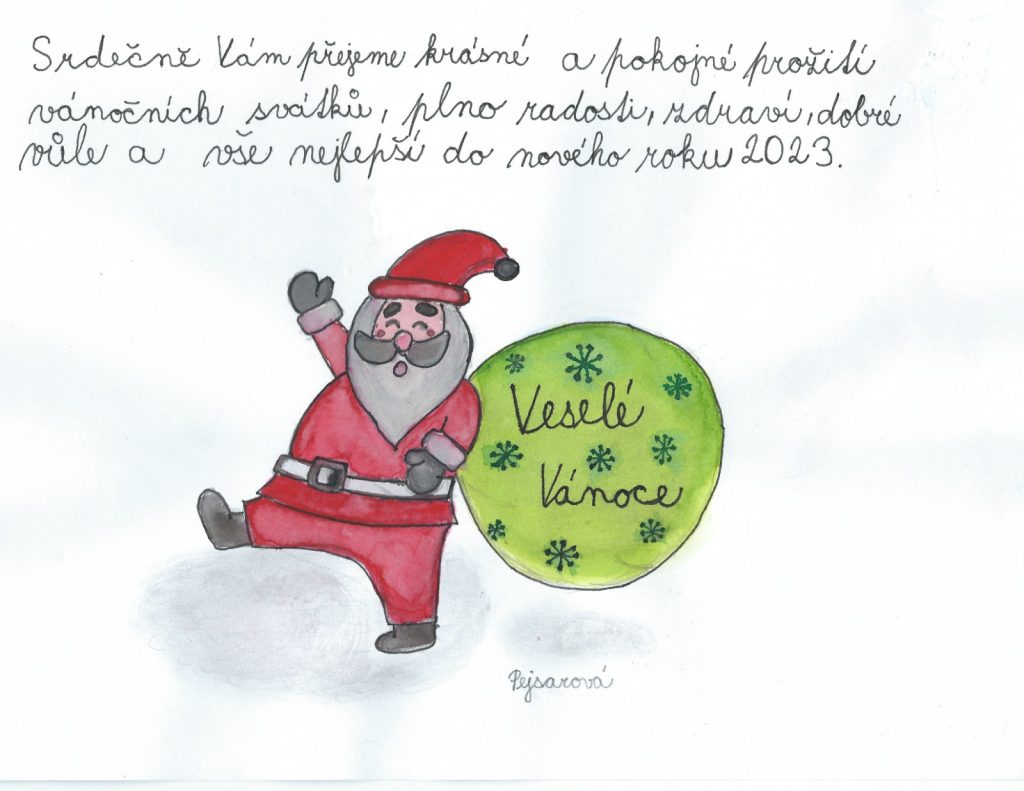 Srdečně Vám přejeme krásné a pokojné prožití
vánočních svátků, plno radosti, zdraví, dobré
vůle a vše nejlepší do nového roku 2023.
Veselé
Vánoce
Pejsarová